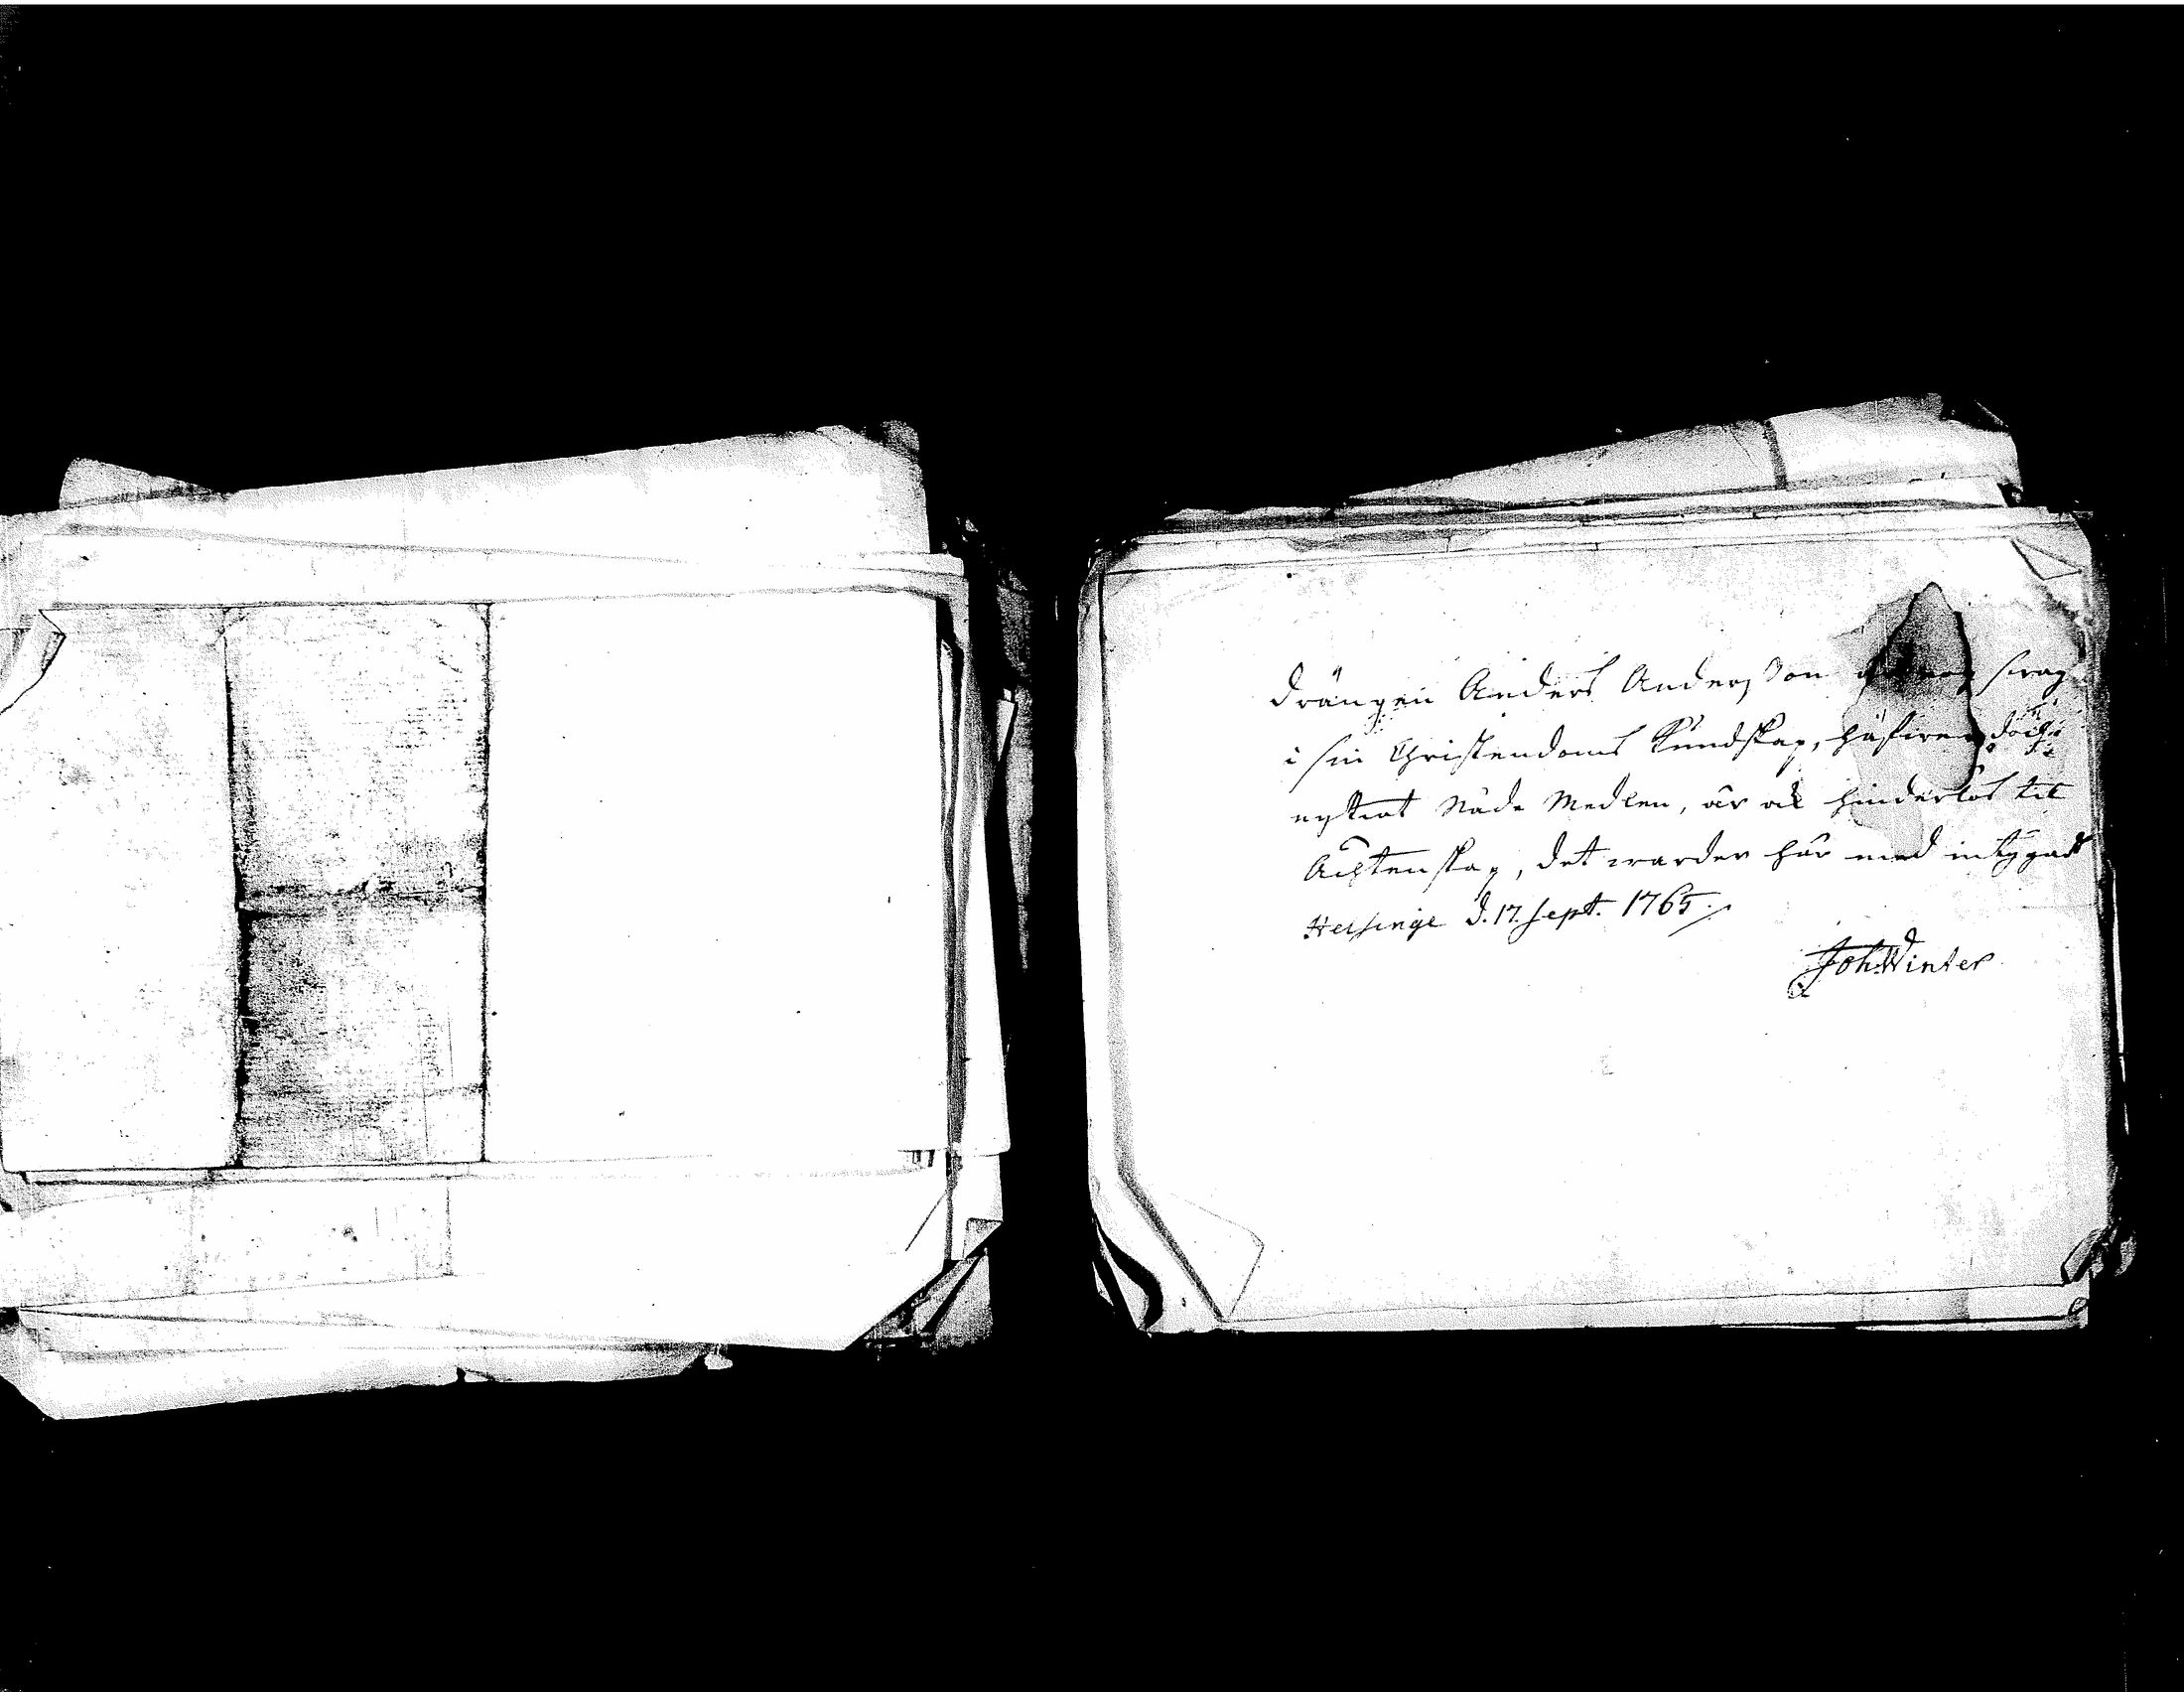 Drängen Anders Andersson swag
i sin Christendoms Kundskap, häfwer doch
nyttiat Nåde Medlen, är ok hinderlös til
Äcktenskap, det warder här med intygadt
Helsinge d. 17. Sept. 1765.
Joh: Winter